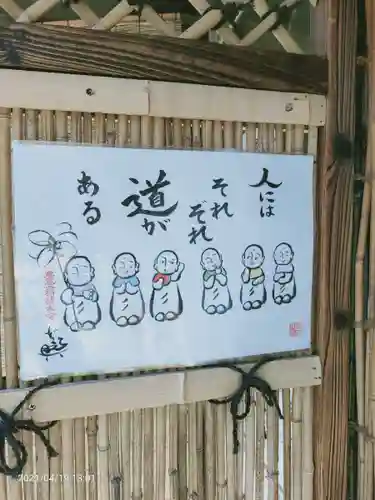 人には
それ
ぞれ
道が
ある
2021/04/19 13:01